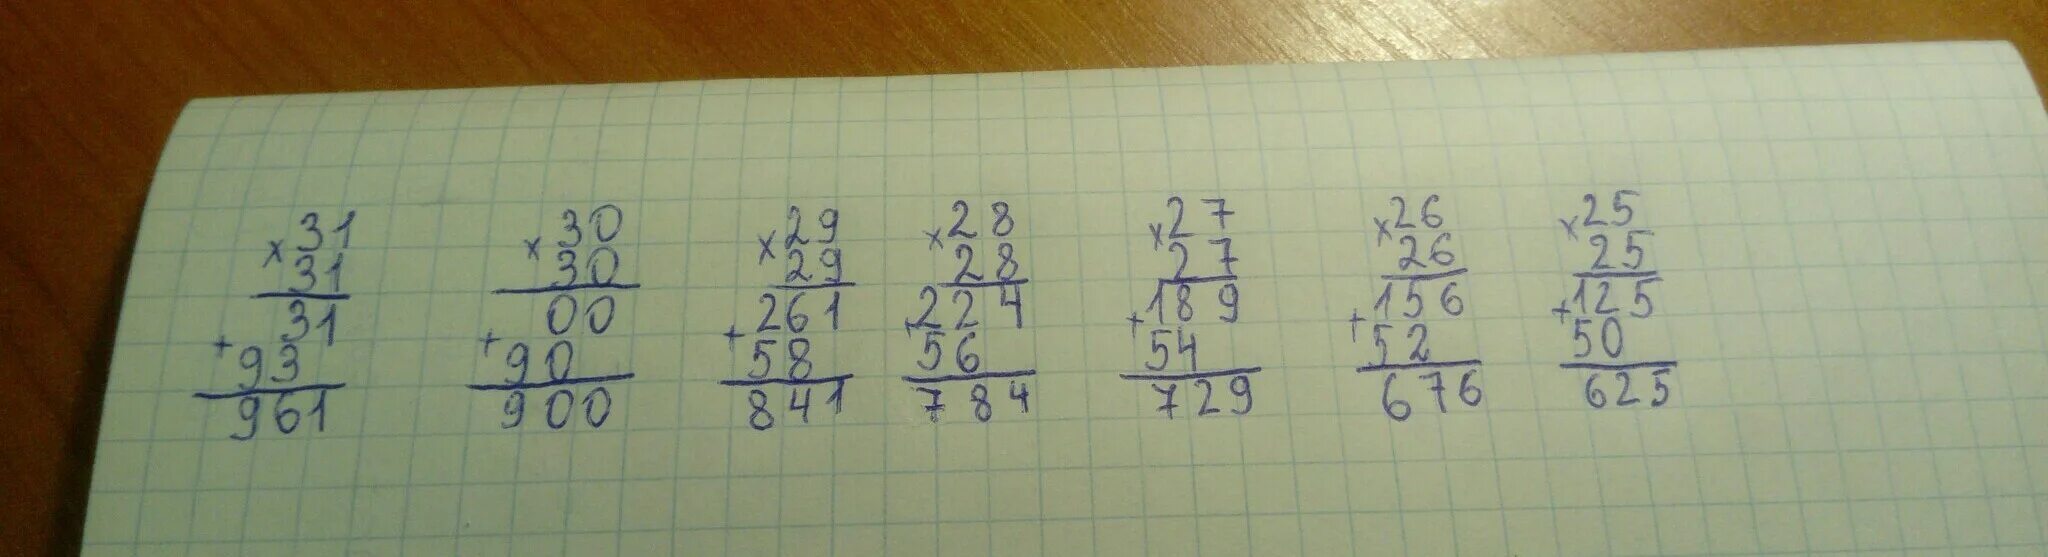 × 31
31
+ 31
93
961
× 30
30
+ 00
90
900
× 29
29
+ 261
58
841
× 28
28
+ 224
56
784
× 27
27
+ 189
54
729
× 26
26
+ 156
52
676
× 25
25
+ 125
50
625